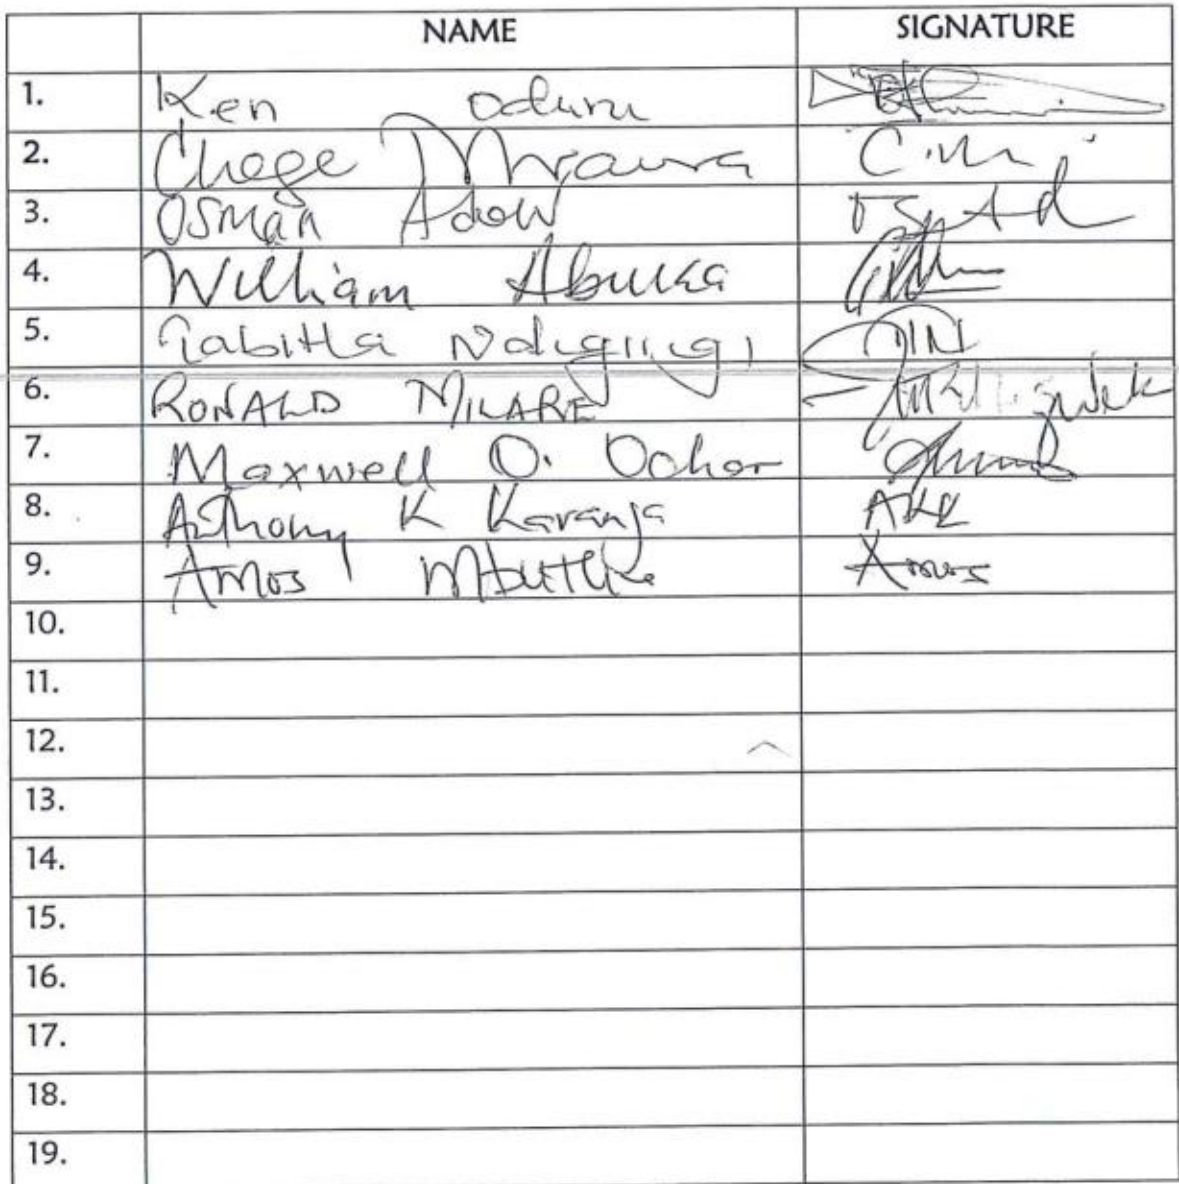 NAME SIGNATURE
1. Ken Oduru
2. Chege Mwaura C.M
3. OSMAN Adow
4. William Abuka
5. Tabitha Ndigirigi
6. RONALD
7. Maxwell O. Ochar
8. Anthony K Karanja AKK
9. AMOS Mbuthia Amos
10.
11.
12.
13.
14.
15.
16.
17.
18.
19.